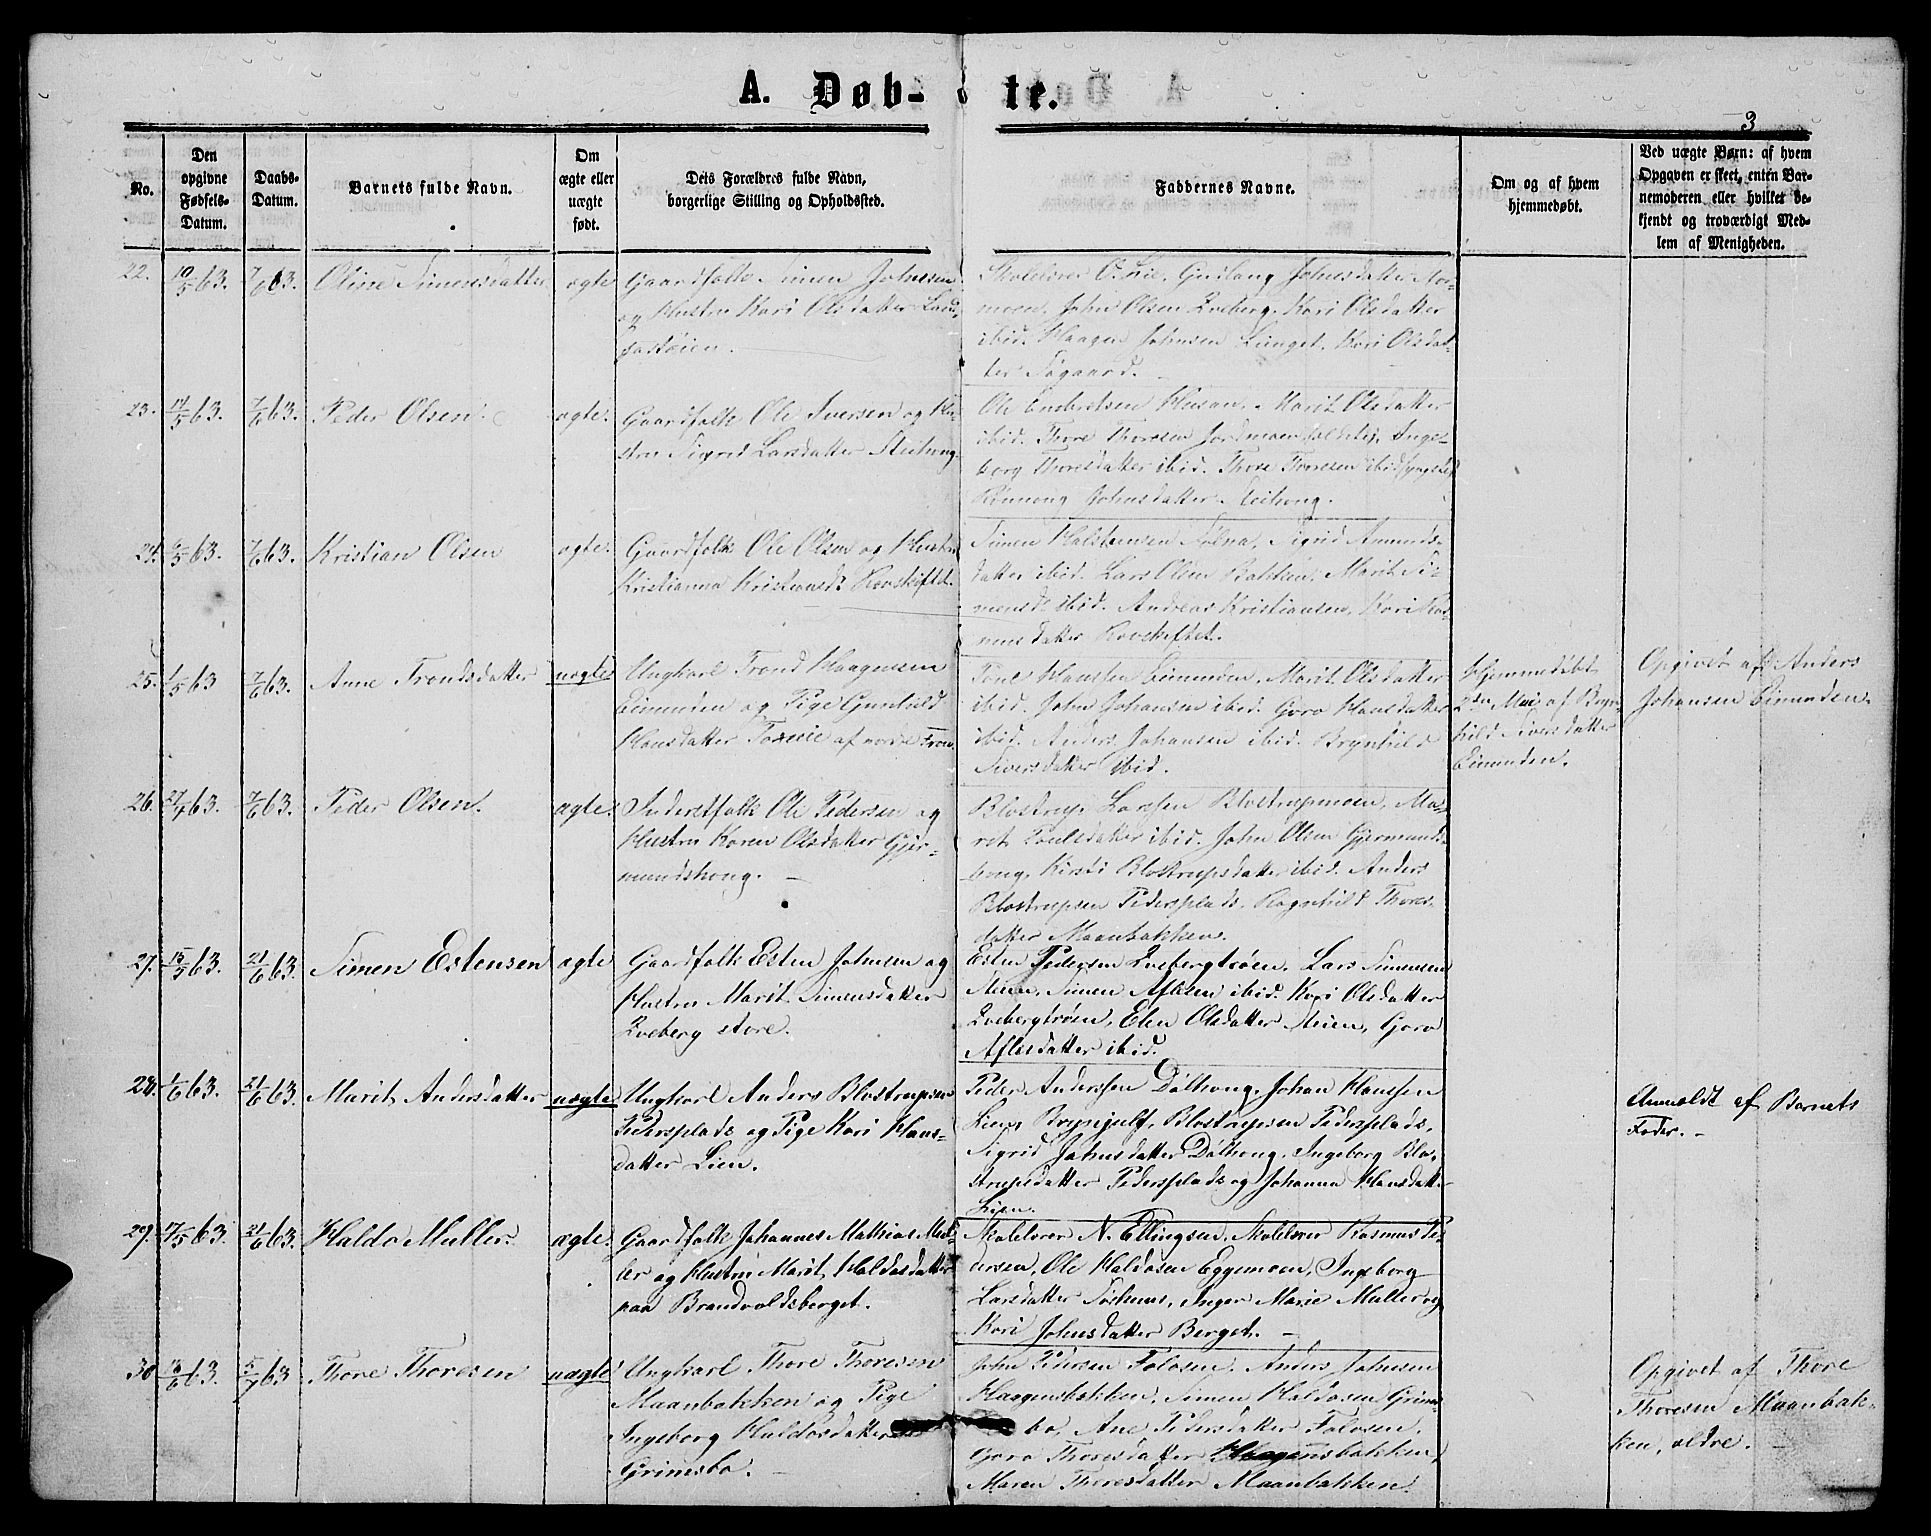 A. Døb- te.
3
No.
Den opgivne Fødsels-Datum.
Daabs-Datum.
Barnets fulde Navn.
Om ægte eller uægte født.
Dets Forældres fulde Navn, borgerlige Stilling og Opholdsted.
Faddernes Navne.
Om og af hvem hjemmedøbt.
Ved uægte Børn: af hvem Opgaven er skeet, enten Barnemoderen eller hvilket bekjendt og troværdigt Medlem af Menigheden.
22. 10/5 63. 7/6 63. Oline Simensdatter ægte
Gaardfolk Simen Johnsen
og Hustru Kari Olsdatter
Skolelærer O. Lie, Gudlaug Johnsdatter
moen, John Olsen Qveberg, Kari Olsdatter
ibid. Haagen Johnsen Kari Olsdat-
ter
23. 14/5 63. 7/6 63. Peder Olsen. ægte.
Gaardfolk Ole Iversen og Hu-
stru Sigrid Larsdatter
Ole Embretsen Marit Olsdatter
ibid. Thore Thoresen Jordmoen Inge-
borg Thoresdatter ibid. Thore Thoresen ibid (yngste)
Rønnaug Johnsdatter
24. 6/5 63. 7/6 63. Kristian Olsen ægte.
Gaardfolk Ole Olsen og Hustru
Kristianna Kristiansdr Kovskiftet.
Simen Halstensen Sølna, Sigrid Amunds-
datter ibid. Lars Olsen Bakken, Marit Si-
mensdr ibid. Andreas Kristiansen, Kari Ras-
musdatter Kovskiftet.
25. 1/5 63 7/6 63. Anne Trondsdatter uægte
Ungkarl Trond Haagensen
Eimunden og Pige Gunhild
Hansdatter af nordre Fron
Hansen Eimunden, Marit Olsdatter
ibid. John Johansen ibid. Goro Hansdatter
ibid. Anders Johansen ibid. Brynhild
Siversdatter ibid.
Hjemmedøbt
2den Mai af Bryn-
hild Siversdatter
Eimunden.
Opgivet af Anders
Johansen Eimunden.
26. 27/4 63. 7/6 63. Peder Olsen. ægte.
Inderstfolk Ole Pedersen og
Hustru Karen Olsdatter Gjer-
mundshoug.
Blostrup Larsen Blostrupmoen, Ma-
ret Poulsdatter ibid. John Olsen Gjermunds-
houg, Kirsti Blostrupsdatter ibid. Anders
Blostrupsen Pedersplads, Ragnhild Thores-
datter Maanbakken.
27. 15/5 63. 21/6 63. Simen Estensen ægte
Gaardfolk Esten Johnsen og
Hustru Marit Simensdatter
Qveberg store.
Esten Pedersen Qvebergtrøen, Lars Simensen
Steien, Simen Aflesen ibid. Kari Olsdatter
Qvebergtrøen, Elen Olsdatter Steien, Goro
Aflesdatter ibid.
28. 1/6 63. 21/6 63. Marit Andersdatter uægte
Ungkarl Anders Blostrupsen
Pedersplads og Pige Kari Hans-
datter Lien.
Peder Andersen Dølhoug, Johan Hansen
Lien, Brynjulf Blostrupsen Pedersplads,
Sigrid Johnsdatter Dølhoug, Ingeborg Blo-
strupsdatter Pedersplads og Johanna Hansdatter
Lien.
Anmeldt af Barnets
Fader.
29. 17/5 63. 21/6 63. Haldo Muller. ægte.
Gaardfolk Johannes Mathias Mul-
ler og Hustru Marit Haldosdatter
paa Brandvoldsberget.
Skolelærer N. Ellingsen, Skolelærer Rasmus Pe-
dersen, Ole Haldosen Eggemoen, Ingeborg
Larsdatter Inger Marie Muller og
Kari Johnsdatter Berget.
30 13/6 63. 5/7 63 Thore Thoresen uægte
Ungkarl Thore Thoresen
Maanbakken og Pige
Ingeborg Haldosdatter
Grimsbo.
John Pedersen Folosen, Anders Johnsen
Haagensbakken, Simen Haldosen Grims-
bo, Ane Pedersdatter Folosen,
Goro Thoresdatter Haagensbakken,
Maren Thoresdatter Maanbakken.
Opgivet af Thore
Thoresen Maanbak-
ken, ældre.